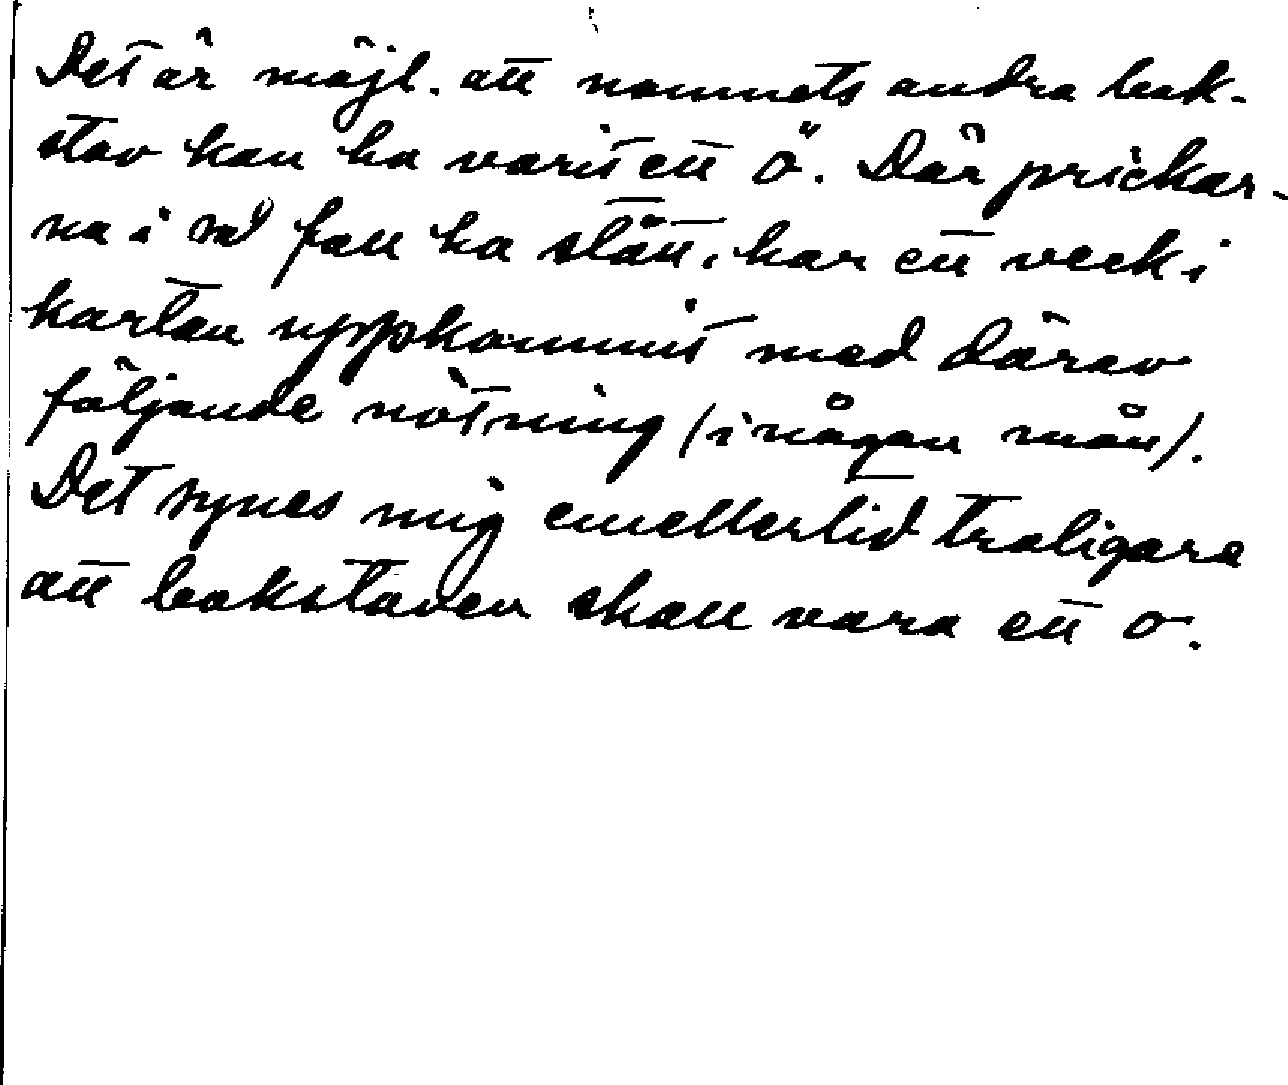 Det är möjl. att namnets andra bok-
stav kan ha varit ett ö. Där prickar-
na i så fall ha stått, har ett veck i
kartan uppkommit med därav
följande nötning (i någon mån).
Det synes mig emellertid troligare
att bokstaven skall vara ett o.